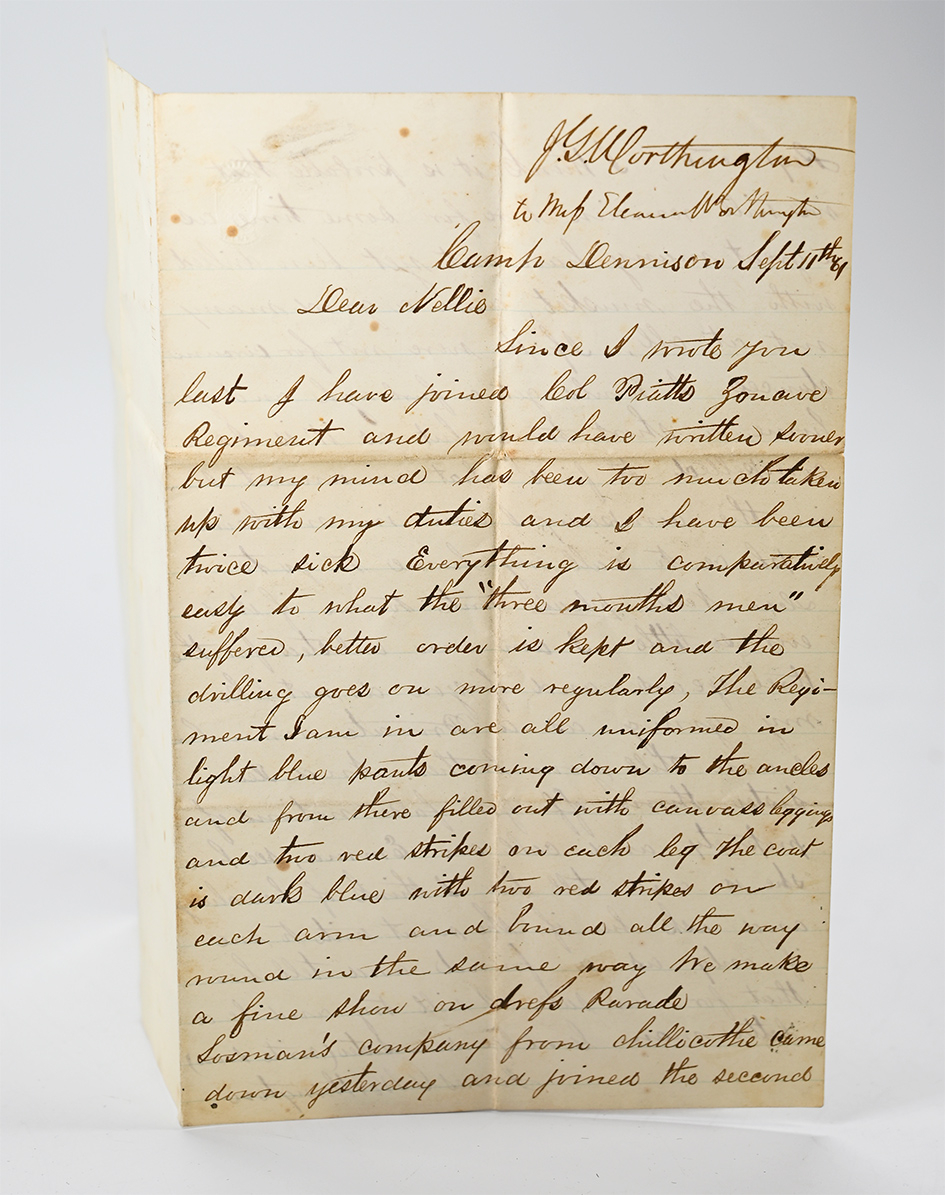 J. G. Worthington
to Miss Eleanor Worthington
Camp Dennison Sept 11th 61
Dear Nellie
Since I wrote you
last I have joined Col Piatts Zouave
Regiment and would have written sooner
but my mind has been too much taken
up with my duties and I have been
twice sick Everything is comparatively
easy to what the "three months men"
suffered, better order is kept and the
drilling goes on more regularly, The Regi-
ment I am in are all uniformed in
light blue pants coming down to the ancles
and from there filled out with canvass leggings
and two red stripes on each leg The coat
is dark blue with two red stripes on
each arm and bound all the way
round in the same way We make
a fine show on dress Parade
Losman's company from chillicothe came
down yesterday and joined the second